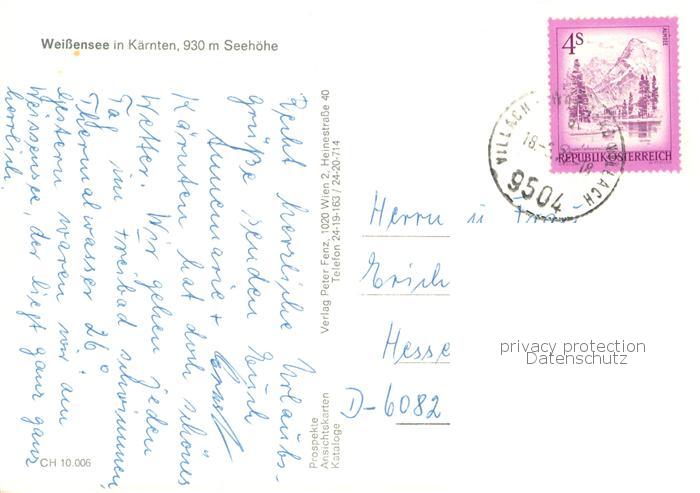 Weißensee in Kärnten, 930 m Seehöhe
Recht herzliche Urlaubs-
grüße senden Euch
Annemarie + Ernst
Kärnten hat doch schönes
Wetter. Wir gehen jeden
Tag im Freibad schwimmen,
Thermalwasser 26°
gestern waren wir am
Weissensee, der liegt ganz ganz
herrlich.
CH 10.006
Verlag Peter Fenz, 1020 Wien 2, Heinestraße 40
Telefon 24-19-163 / 24-20-714
Prospekte
Ansichtskarten
Kataloge
4S
ALMSEE
REPUBLIK ÖSTERREICH
VILLACH
9504
Herrn u Frau
Erich
Hesse
D-6082
privacy protection
Datenschutz